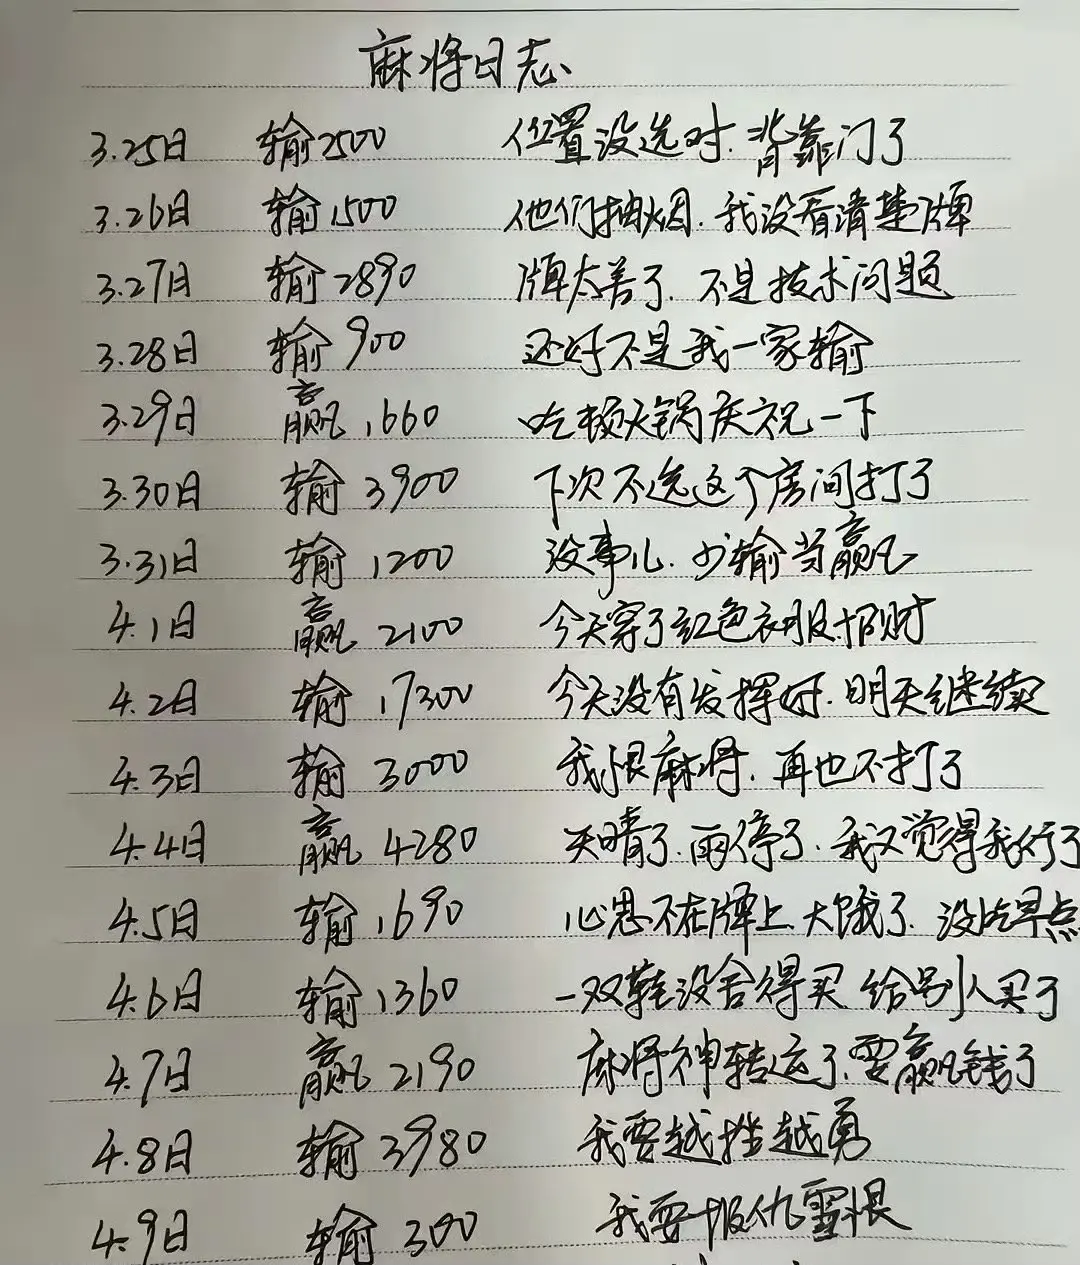 麻将日志
3.25日 输2500 位置没选对.背靠门了
3.26日 输1500 他们抽烟.我没看清楚牌
3.27日 输2890 牌太差了.不是技术问题
3.28日 输900 还好不是我一家输
3.29日 赢1660 吃顿火锅庆祝一下
3.30日 输3900 下次不选这个房间打了
3.31日 输1200 没事儿.少输当赢
4.1日 赢2100 今天穿了红色衣服招财
4.2日 输17300 今天没有发挥好.明天继续
4.3日 输3000 我恨麻将.再也不打了
4.4日 赢4280 天晴了.雨停了.我又觉得我行了
4.5日 输1690 心思不在牌上 大饿了.没吃早点
4.6日 输1360 一双鞋没舍得买 给别人买了
4.7日 赢2190 麻将神转运了.要赢钱了
4.8日 输3980 我要越挫越勇
4.9日 输300 我要报仇雪恨